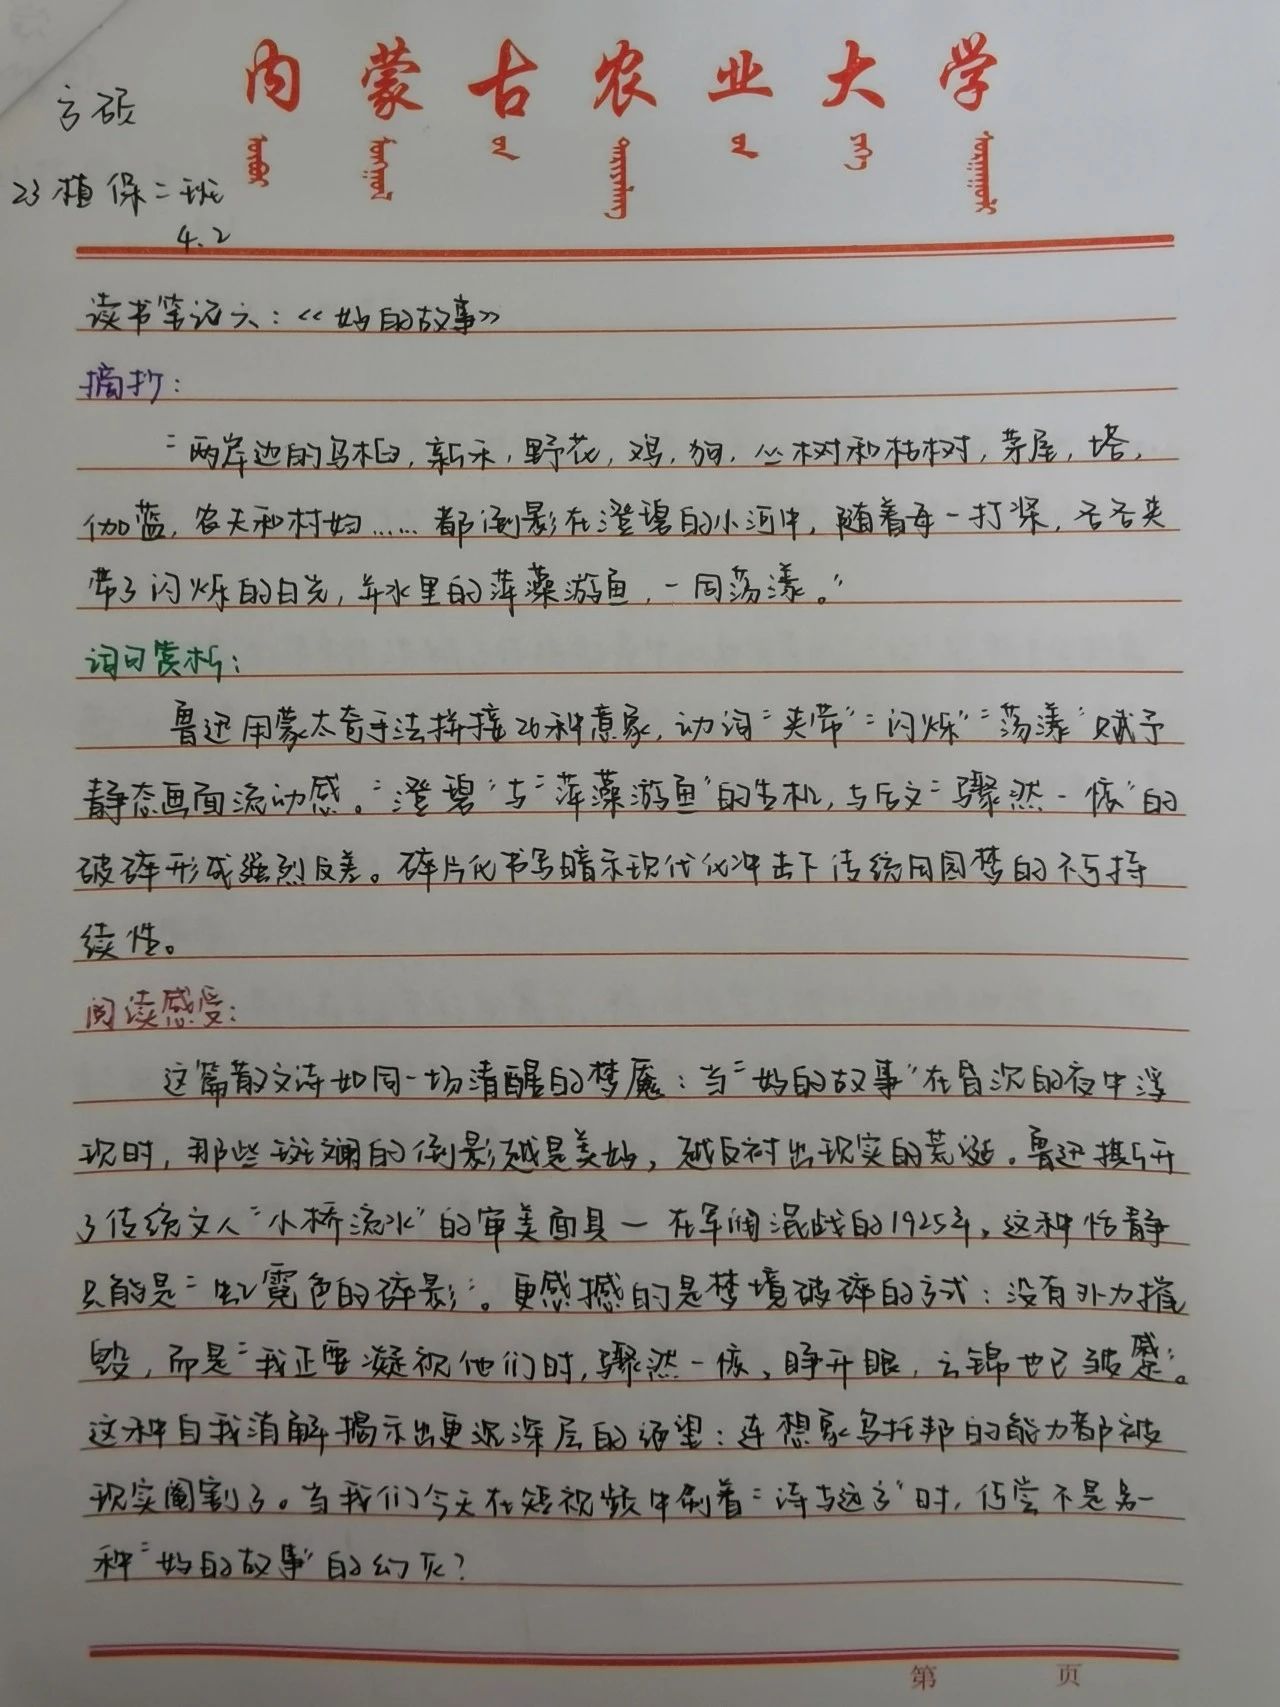 内蒙古农业大学
言硕
23植保二班
4.2
读书笔记六：《好的故事》
摘抄：
“两岸边的乌桕，新禾，野花，鸡，狗，丛树和枯树，茅屋，塔，
伽蓝，农夫和村妇……都倒影在澄碧的小河中，随着每一打桨，各各夹
带了闪烁的日光，并水里的萍藻游鱼，一同荡漾。”
词句赏析：
鲁迅用蒙太奇手法拼接26种意象，动词“夹带”“闪烁”“荡漾”赋予
静态画面流动感。“澄碧”与“萍藻游鱼”的生机，与后文“骤然一惊”的
破碎形成强烈反差。碎片化书写暗示现代化冲击下传统田园梦的不可持
续性。
阅读感受：
这篇散文诗如同一场清醒的梦魇：当“好的故事”在昏沉的夜中浮
现时，那些斑斓的倒影越是美好，越反衬出现实的荒诞。鲁迅撕开
了传统文人“小桥流水”的审美面具—在军阀混战的1925年，这种恬静
只能是“虹霓色的碎影”。更感撼的是梦境破碎的方式：没有外力摧
毁，而是“我正要凝视他们时，骤然一惊，睁开眼，云锦也已皱蹙”。
这种自我消解揭示出更沉深层的绝望：连想象乌托邦的能力都被
现实阉割了。当我们今天在短视频中刷着“诗与远方”时，何尝不是另一
种“好的故事”的幻灭？
第 页